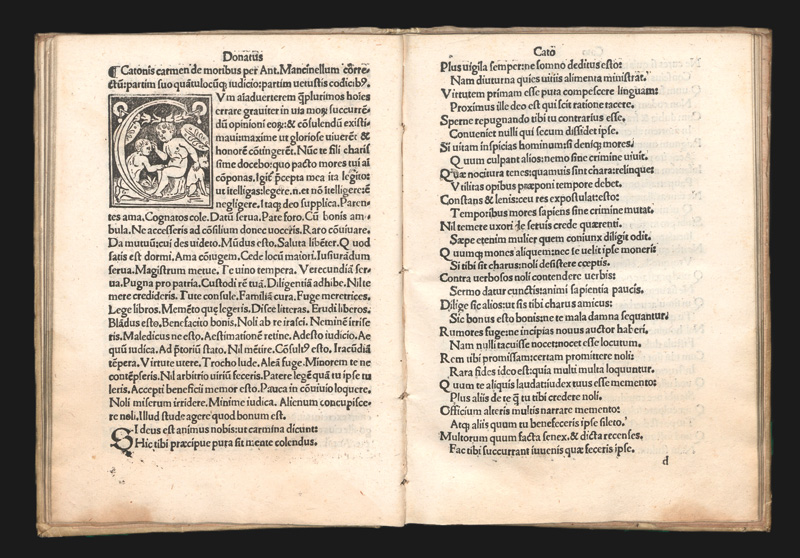 Donatus
¶ Catonis carmen de moribus per Ant. Mancinellum cõrre-
ctũ: partim suo quãtulocũqꝫ iudicio: partim uetustis codicibꝰ.
CVm aiaduerterem q̃plurimos hoies
errare grauiter in uia moꝝ succurrẽ-
dũ opinioni eoꝝ: & cõsulendũ existi-
maui maxime ut gloriose uiuerẽt &
honorẽ cõtingerẽt. Nũc te fili charis
sime docebo: quo pacto mores tui ai
cõponas. Igit̃ p̃cepta mea ita legito:
ut itelligas: legere.n. et nõ itelligere: ẽ
negligere. Itaqꝫ deo supplica. Paren-
tes ama. Cognatos cole. Datũ serua. Pare foro. Cũ bonis am-
bula. Ne accesseris ad cõsilium donec uoceris. Raro cõuiuare.
Da mutuũ: cui des uideto. Mũdus esto. Saluta libẽter. Q uod
satis est dormi. Ama cõiugem. Cede locũ maiori. Iusiurãdum
serua. Magistrum metue. Te uino tempera. Verecundiã ser-
ua. Pugna pro patria. Custodi rẽ tuã. Diligentiã adhibe. Nil te
mere credideris. Tute consule. Familiã cura. Fuge meretrices.
Lege libros. Memẽto quę legeris. Disce litteras. Erudi liberos.
Blãdus esto. Benefacito bonis. Noli ab re irasci. Neminẽ irrise
ris. Maledicus ne esto. Aestimationẽ retine. Adesto iudicio. Ae
quũ iudica. Ad p̃toriũ stato. Nil mẽtire. Cõsultꝰ esto. Iracũdiã
tẽpera. Virtute utere. Trocho lude. Aleã fuge. Minorem te ne
contẽpseris. Nil arbitrio uiriũ feceris. Patere legẽ quã tu ipse tu
leris. Accepti beneficii memor esto. Pauca in cõuiuio loquere.
Noli miserum irridere. Minime iudica. Alienum concupisce-
re noli. Illud stude agere quod bonum est.
SI deus est animus nobis: ut carmina dicunt:
Hic tibi præcipue pura sit mente colendus.
Catõ
Plus uigila semper: ne somno deditus esto:
Nam diuturna quies uitiis alimenta ministrat.
Virtutem primam esse puta compescere linguam:
Proximus ille deo est qui scit ratione tacere.
Sperne repugnando tibi tu contrarius esse.
Conueniet nulli qui secum dissidet ipse.
Si uitam inspicias hominum: si deniqꝫ mores:
Q uum culpant alios: nemo sine crimine uiuit.
Quæ nocitura tenes: quamuis sint chara: relinque:
Vtilitas opibus præponi tempore debet.
Constans & lenis: ceu res expostulat: esto:
Temporibus mores sapiens sine crimine mutat.
Nil temere uxori de seruis crede quærenti.
Sæpe etenim mulier quem coniunx diligit odit.
Q uumqꝫ mones aliquem: nec se uelit ipse moneri:
Si tibi sit charus: noli desistere cœptis.
Contra uerbosos noli contendere uerbis:
Sermo datur cunctis: animi sapientia paucis.
Dilige sic alios: ut sis tibi charus amicus:
Sic bonus esto bonis: ne te mala damna sequantur.
Rumores fuge: ne incipias nouus auctor haberi.
Nam nulli tacuisse nocet: nocet esse locutum.
Rem tibi promissam: certam promittere noli:
Rara fides ideo est: quia multi multa loquuntur.
Q uum te aliquis laudat: iudex tuus esse memento:
Plus aliis de te q̃ tu tibi credere noli.
Officium alteris multis narrare memento:
Atqꝫ aliis quum tu benefeceris ipse sileto.
Multorum quum facta senex. & dicta recenses.
Fac tibi succurrant iuuenis quæ feceris ipse.
d